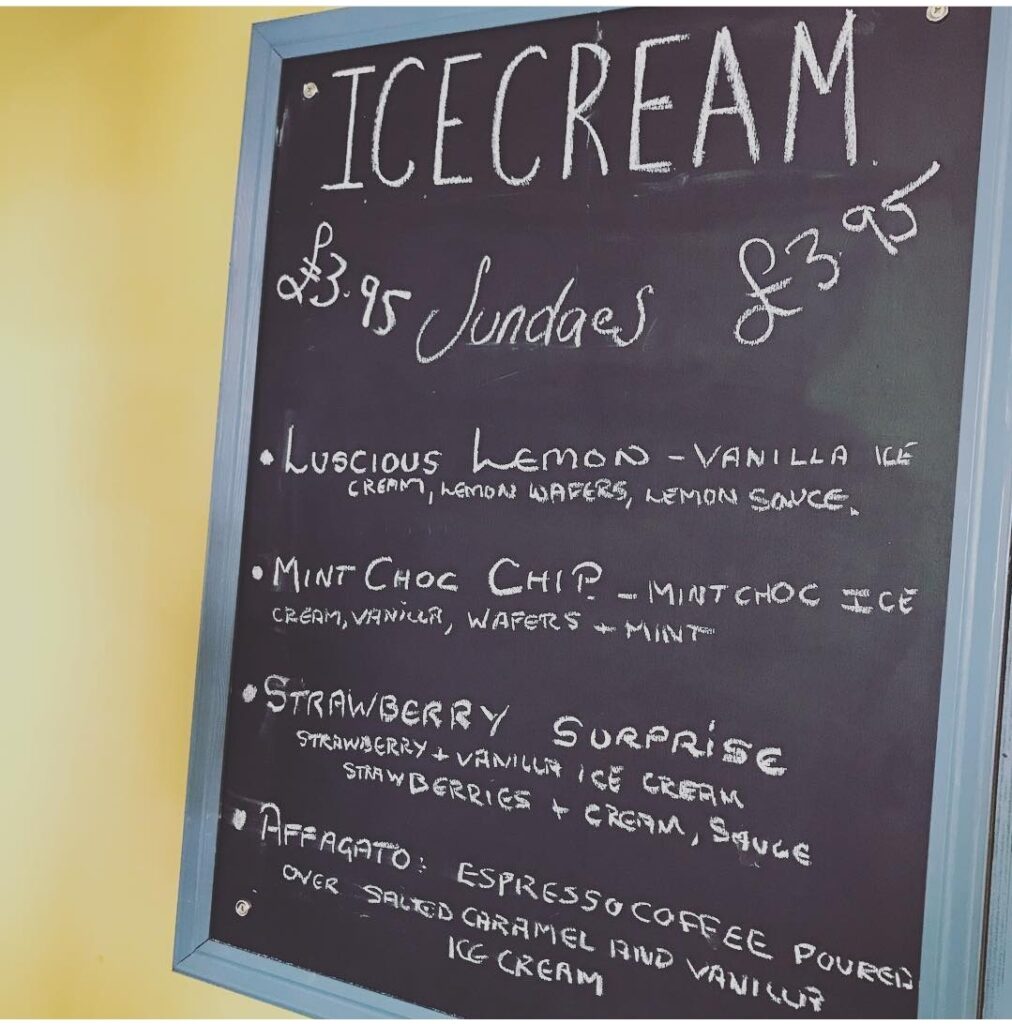 ICECREAM
£3.95 Sundaes £3.95
• LUSCIOUS LEMON - VANILLA ICE
CREAM, LEMON WAFERS, LEMON SAUCE.
• MINT CHOC CHIP - MINT CHOC ICE
CREAM, VANILLA, WAFERS + MINT
• STRAWBERRY SURPRISE
STRAWBERRY + VANILLA ICE CREAM
STRAWBERRIES + CREAM, SAUCE
• AFFAGATO: ESPRESSO COFFEE POURED
OVER SALTED CARAMEL AND VANILLA
ICE CREAM